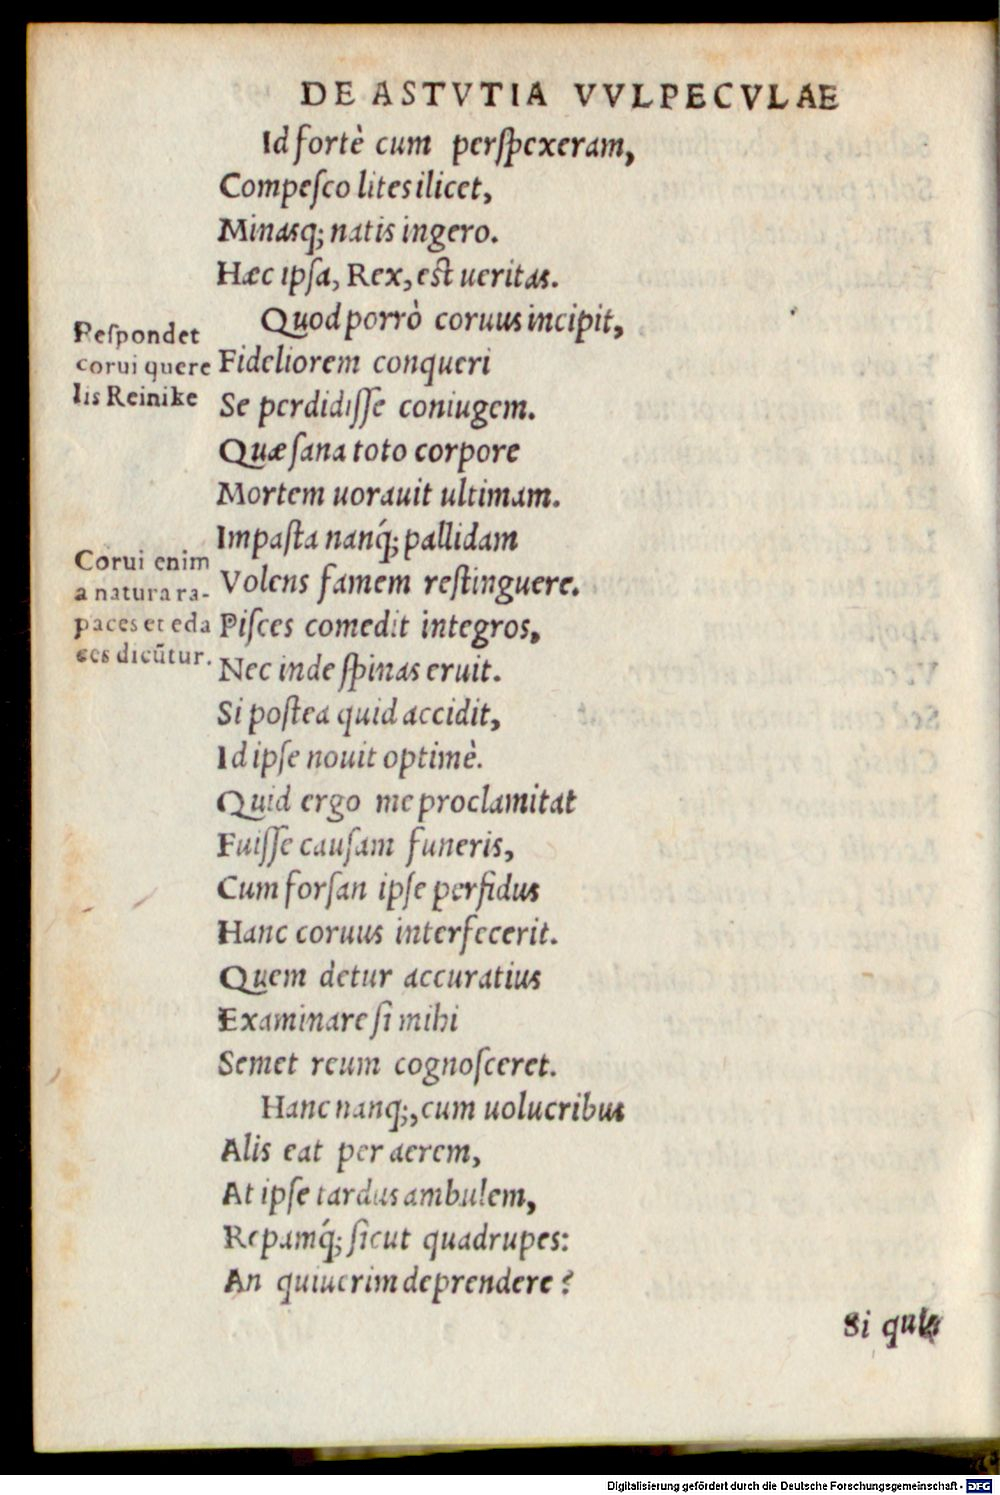 DE ASTVTIA VVLPECVLAE
Id fortè cum perſpexeram,
Compeſco lites ilicet,
Minasq; natis ingero.
Hæc ipſa, Rex, eſt ueritas.
Quod porrò coruus incipit,
Reſpondet
corui quere
lis Reinike
Fideliorem conqueri
Se perdidiſſe coniugem.
Quæ ſana toto corpore
Mortem uorauit ultimam.
Impaſta nanq́; pallidam
Corui enim
a natura ra-
paces et eda
ces dicũtur.
Volens famem reſtinguere.
Piſces comedit integros,
Nec inde ſpinas eruit.
Si poſtea quid accidit,
Id ipſe nouit optimè.
Quid ergo me proclamitat
Fuiſſe cauſam funeris,
Cum forſan ipſe perfidus
Hanc coruus interfecerit.
Quem detur accuratius
Examinare ſi mihi
Semet reum cognoſceret.
Hanc nanq;, cum uolucribus
Alis eat per aerem,
At ipſe tardus ambulem,
Repamq́; ſicut quadrupes:
An quiuerim deprendere?
Si quis
Digitalisierung gefördert durch die Deutsche Forschungsgemeinschaft - DFG